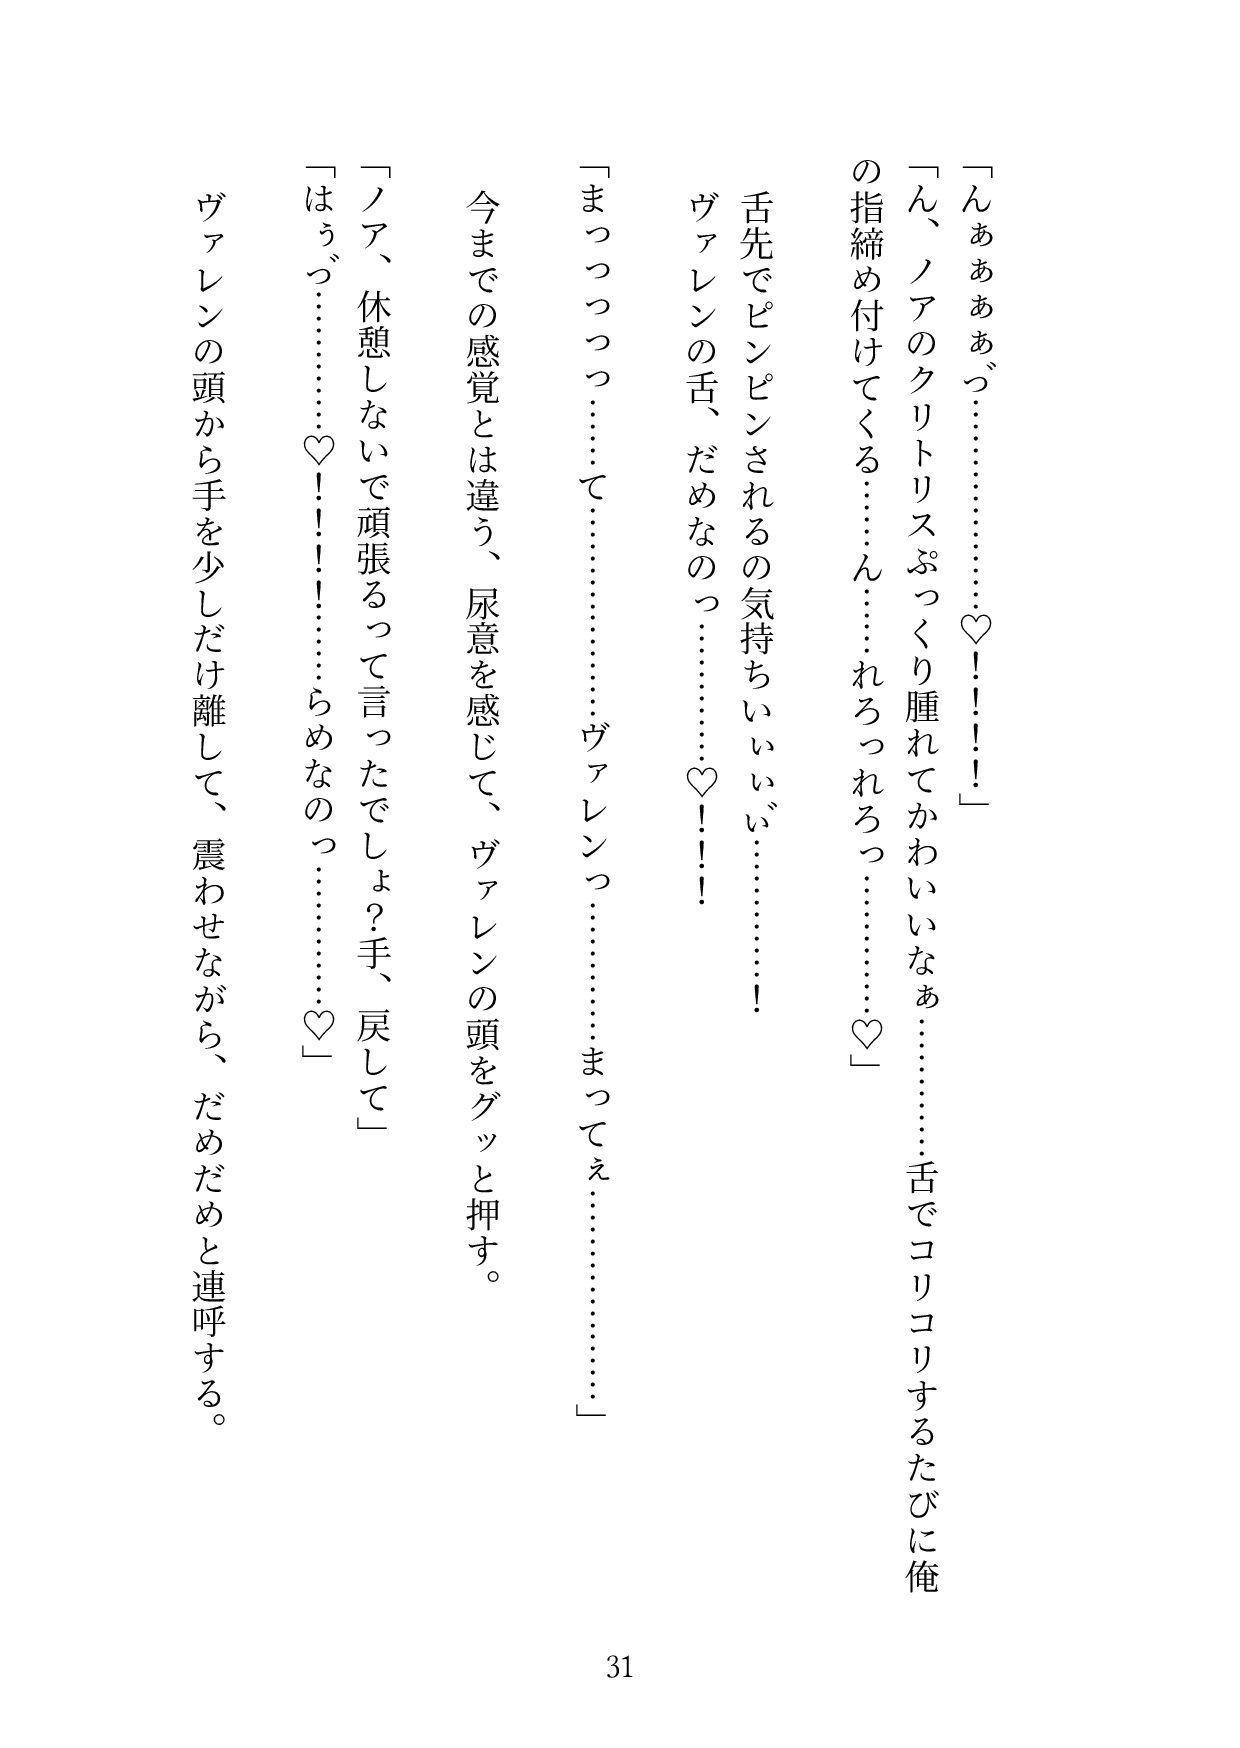 「んぁぁぁぁづ………………♡！！！！」
「ん、ノアのクリトリスぷっくり腫れてかわいいなぁ…………舌でコリコリするたびに俺
の指締め付けてくる……ん……れろっれろっ…………♡」
舌先でピンピンされるの気持ちいぃぃぃ゛…………！
ヴァレンの舌、だめなのっ…………♡！！！
「まっっっっっ……て………………ヴァレンっ…………まってぇ………………」
今までの感覚とは違う、尿意を感じて、ヴァレンの頭をグッと押す。
「ノア、休憩しないで頑張るって言ったでしょ？手、戻して」
「はぅづ…………♡！！！！……らめなのっ…………♡」
ヴァレンの頭から手を少しだけ離して、震わせながら、だめだめと連呼する。
31